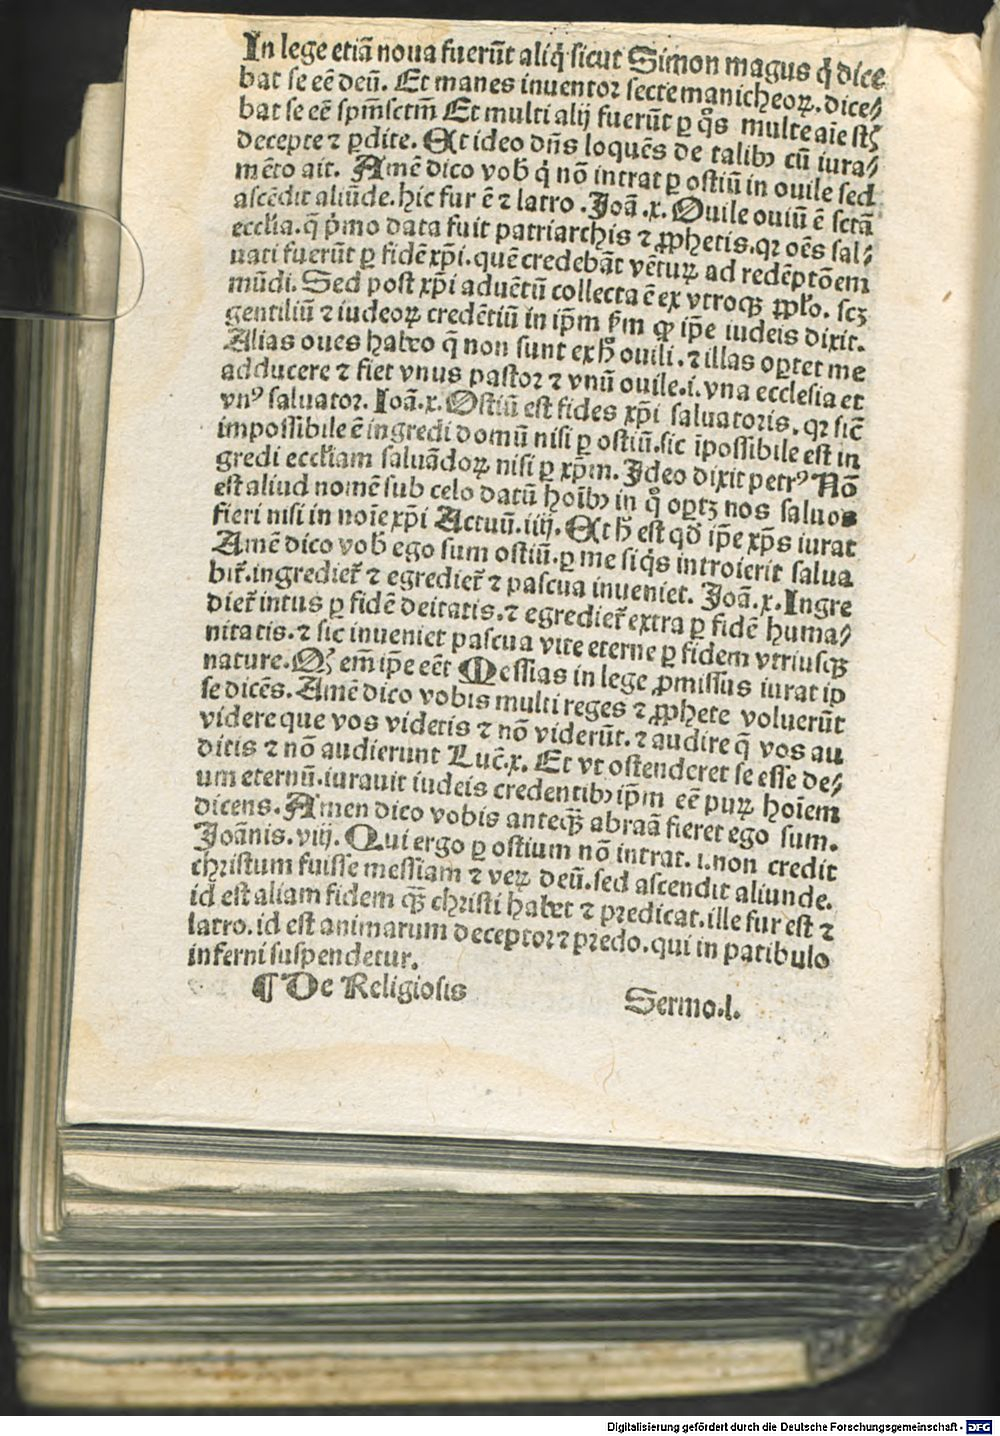 In lege etiā noua fuerūt aliq̇ sicut Simon magus q̇ dice
bat se eē deū. Et manes inuentor secte manicheoꝝ. dice⸗
bat se eē spm̄sctm̄ Et multi alij fuerūt ꝑ qͦs multe aīe st̄
decepte ⁊ ꝑdite. At ideo dn̄s loquēs de talibꝰ cū iura⸗
mēto ait. Amē dico vob̄ q̇ nō intrat ꝑ ostiū in ouile sed
ascēdit aliūde. hic fur ē ⁊ latro. Joā.x. Ouile ouiū ē sctā
eccl̄ia. q̄ pͥmo data fuit patriarchis ⁊ ꝓphetis. qꝛ oēs sal⸗
uati fuerūt ꝑ fidē xp̄i. quē credebāt vētuꝝ ad redēptōem
mūdi. Sed post xp̄i aduētū collecta ē ex vtroqꝫ ꝓpl̄o. scꝫ
gentiliū ⁊ iudeoꝝ credētiū in ip̄m ẜm ꝙ ip̄e iudeis dixit.
Alias oues habeo q̄ non sunt ex h̄ ouili. ⁊ illas oꝑtet me
adducere ⁊ fiet vnus pastor ⁊ vnū ouile .i. vna ecclesia et
vnꝰ saluator. Ioā.x. Ostiū est fides xp̄i saluatoris. qꝛ sic̄
impossibile ē ingredi domū nisi ꝑ ostiū. sic īpossibile est in
gredi eccl̄iam saluādoꝝ nisi ꝑ xp̄m. Ideo dixit petrꝰ Nō
est aliud nomē sub celo datū hoīb̄ in qͦ oꝑtꝫ nos saluos
fieri nisi in noīe xp̄i Actuū.iiij. At h̄ est qđ ip̄e xp̄s iurat
Amē dico vob̄ ego sum ostiū. ꝑ me siq̇s introierit salua
bit̄. ingrediet̄ ⁊ egrediet̄ ⁊ pascua inueniet. Joā.x. Ingre
diet̄ intus ꝑ fidē deitatis. ⁊ egrediet̄ extra ꝑ fidē huma⸗
nitatis. ⁊ sic inueniet pascua vite eterne ꝑ fidem vtriusqꝫ
nature. Qꝫ em̄ ip̄e eēt Messias in lege ꝓmissus iurat ip
se dicēs. Amē dico vobis multi reges ⁊ ꝓphete voluerūt
videre que vos videtis ⁊ nō viderūt. ⁊ audire q̄ vos au
ditis ⁊ nō audierunt Luc̄.x. Et vt ostenderet se esse de⸗
um eternū. iurauit iudeis credentibꝰ ip̄m eē puꝝ hoīem
dicens. Amen dico vobis anteqꝫ̄ abraā fieret ego sum.
Joānis.viij. Qui ergo ꝑ ostium nō intrat. i. non credit
christum fuisse messiam ⁊ veꝝ deū. sed ascendit aliunde.
id est aliam fidem qꝫ̄ christi habet ⁊ predicat. ille fur est ⁊
latro. id est animarum deceptor ⁊ predo. qui in patibulo
inferni suspendetur.
¶ De Religiosis Sermo.l.
Digitalisierung gefördert durch die Deutsche Forschungsgemeinschaft - DFG